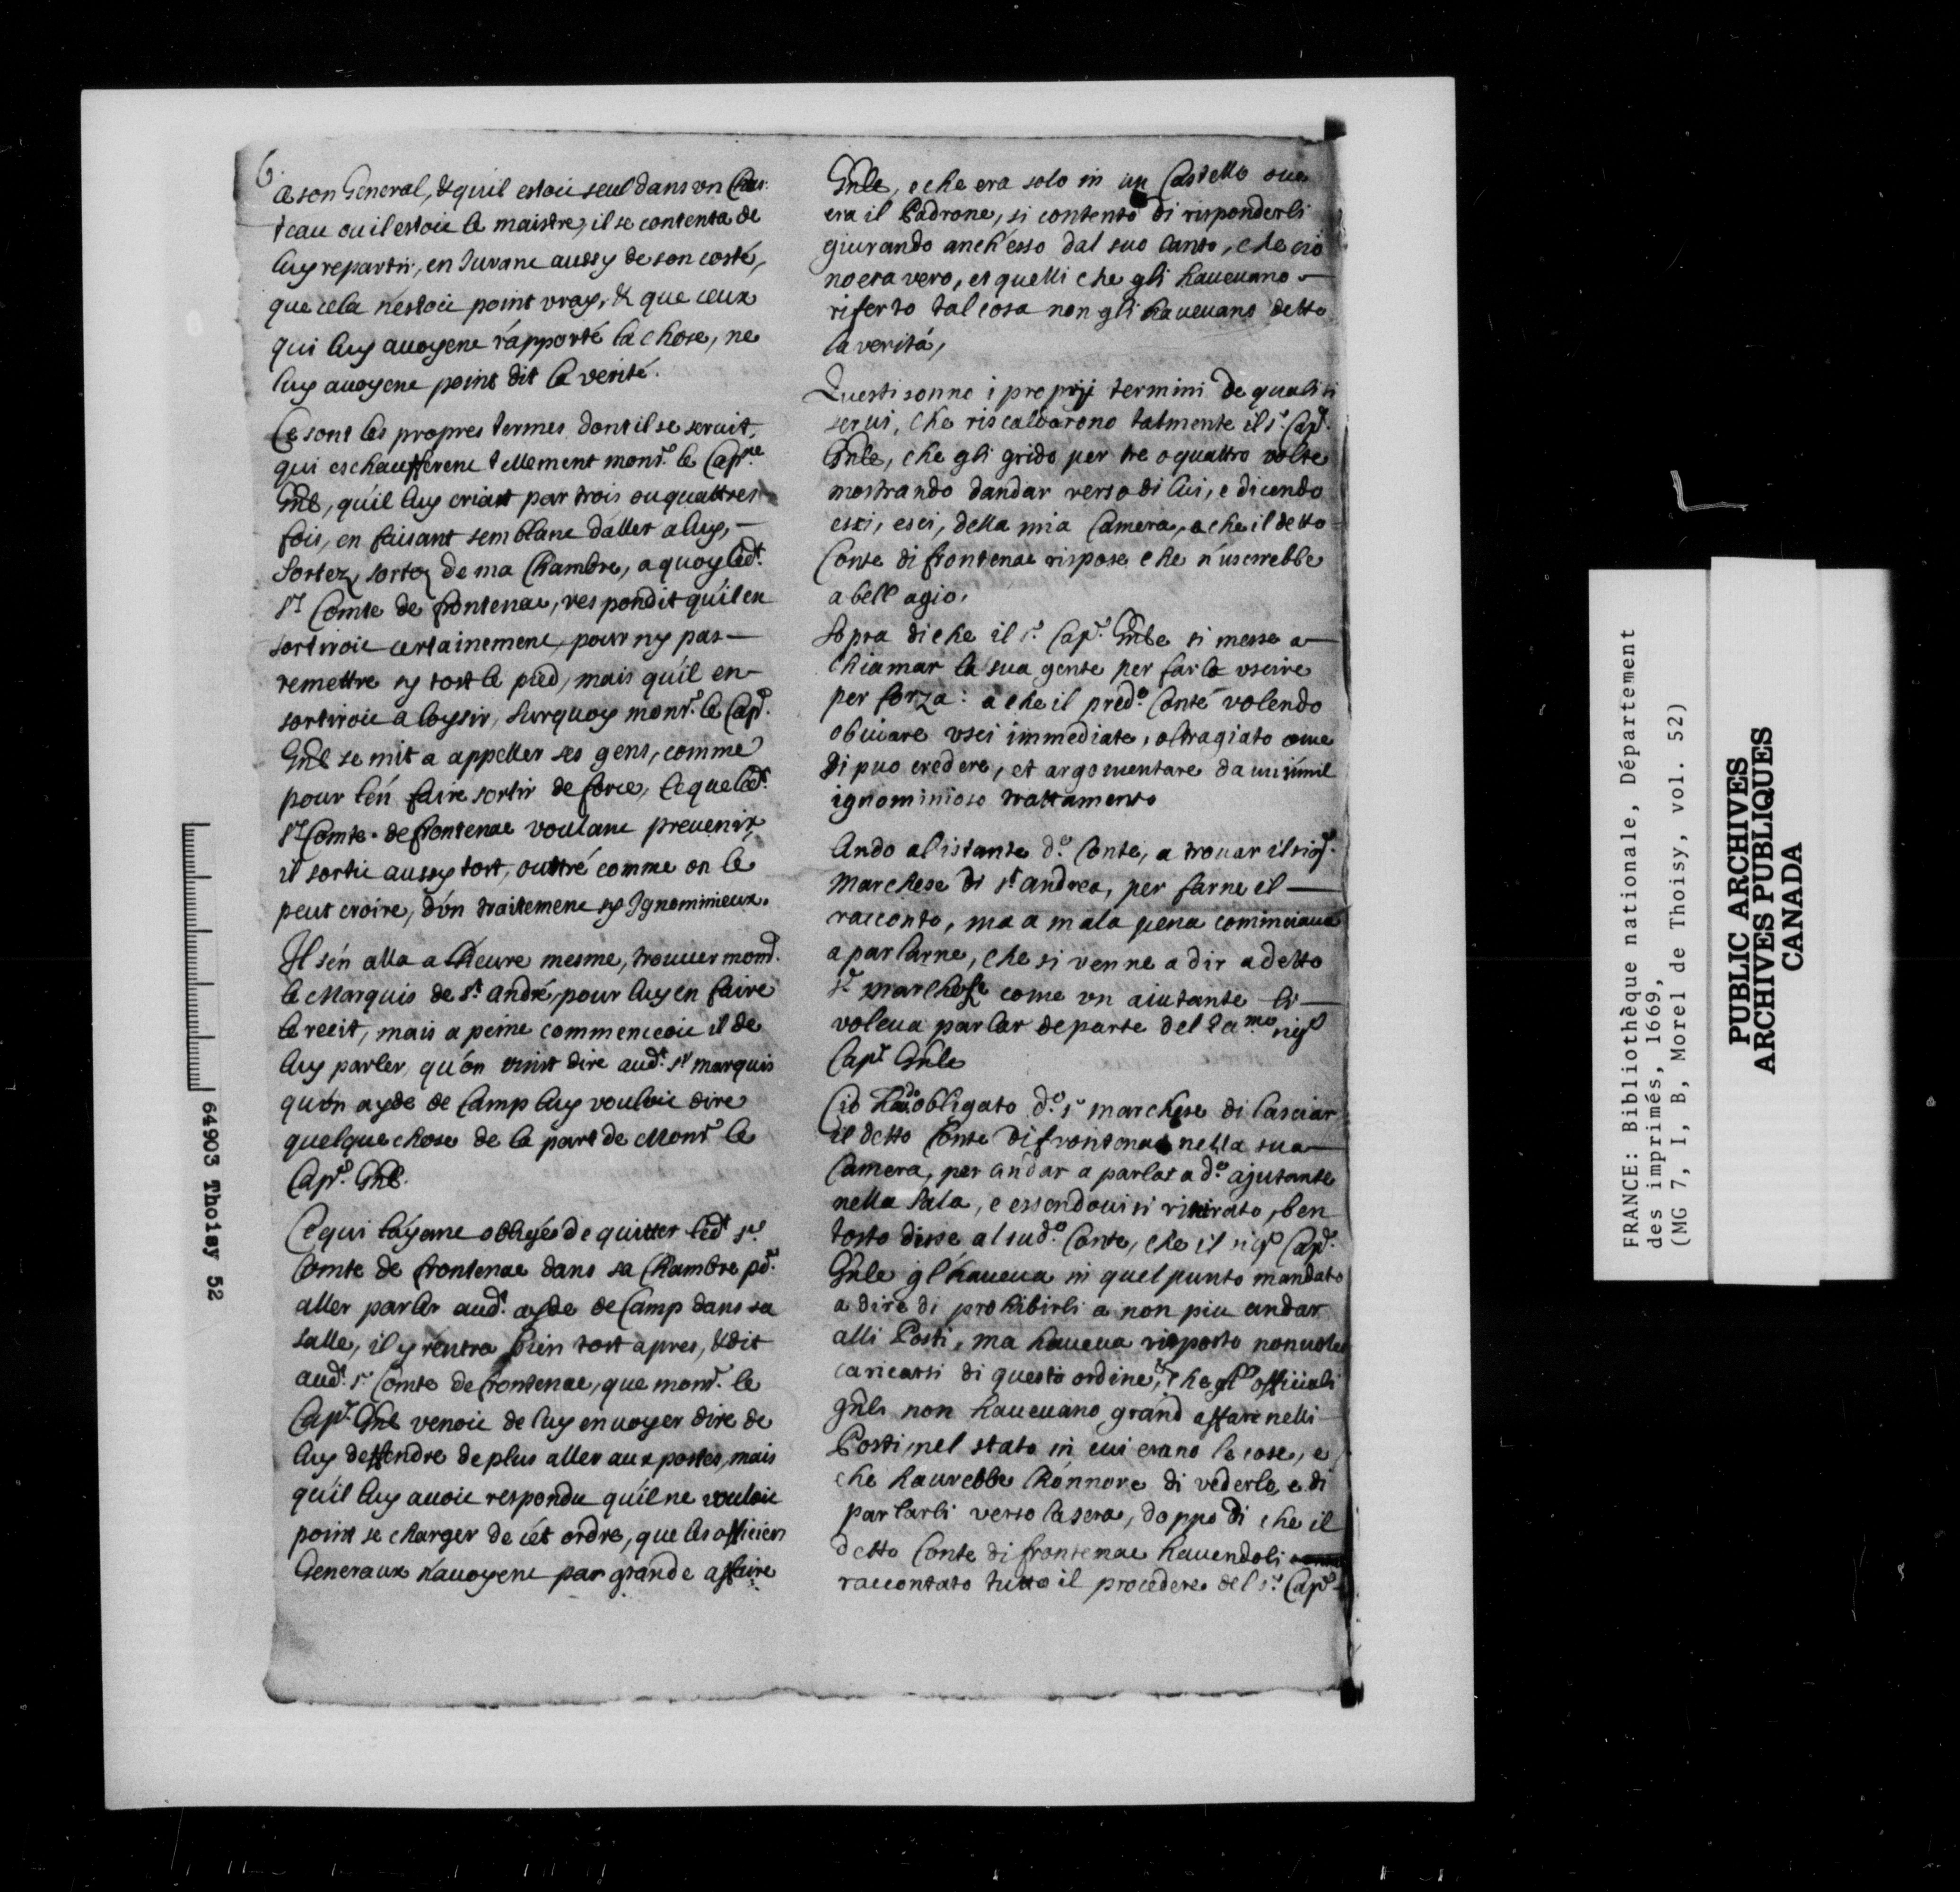 6.
a son General, & qu'il estoit seul dans vn Chas:
teau ou il estoit le maistre, il se contenta de
luy repartir, en Jurant aussy de son costé,
que cela n'estoit point vray, & que ceux
qui luy auoyent rápporté la chose, ne
luy auoyent point dit la verité.
Ce sont les propres termes dont il se seruit,
qui eschaufferent tellement monsr. le Capne
Gnl, qu'il luy criast par trois ou quattres
fois, en faisant semblant d'aller a luy, —
Sortez, sortez de ma Chambre, a quoy ledt.
Sr Comte de frontenac, respondit qu'il en
sortiroit certainement, pour ny pas —
remettre sy tost le pied, mais qu'il en
sortiroit a loysir, Surquoy monsr. le Capne.
Gnl se mit a appeller ses gens, comme
pour l'en faire sortir de force, ce que ledt.
Sr Comte de frontenac voulant preuenir,
il sortit aussy tost, outtré comme on le
peut croire, d'vn traitement sy Ignominieux.
Il s'en alla a l'heure mesme, trouuer monsr.
le Marquis de St. André, pour luy en faire
le recit, mais a peine commenceoit il de
luy parler, qu'on vint dire audt. Sr marquis
qu'vn ayde de Camp luy vouloit dire
quelque chose de la part de Monsr le
Capne. Gnl.
Ce qui l'ayant obligés de quitter ledt Sr.
Comte de frontenac dans sa Chambre pr.
aller parler audt. ayde de Camp dans sa
salle, il y rentra bien tost apres, & dit
audt. Sr. Comte de frontenac, que monsr. le
Capne. Gnl venoit de luy enuoyer dire de
luy deffendre de plus aller aux postes, mais
qu'il luy auoit respondu qu'il ne vouloit
point se charger de cét ordre, que les officiers
Generaux n'auoyent pas grande affaire
Gnle, e che era solo in un Castello oue
era il Padrone, si contento di risponderli
giurando anch'esso dal suo Canto, che ciò
no era vero, et quelli che gli haueuano —
riferto tal cosa non gli haueuano detto
la verità,
Questi sonno i proprij termini de quali si
serui, che riscaldarono talmente il Sr. Capne.
Gnle, che gli grido per tre o quattro volte
mostrando d'andar verso di lui, e dicendo
esci, esci, della mia Camera, a che il detto
Conte di frontenac rispose che n'uscirebbe
a bell agio,
Sopra di che il Sr. Capne. Gnle si messe a —
Chiamar la sua gente per farlo vscire
per forza: a che il predo. Conte volendo
obuiare vsci immediate, oltragiato come
si puo credere, et argomentare da un simil
ignominioso trattamento
Ando al istante do. Conte, a trouar il sigr.
Marchese di St. andrea, per farne il —
racconto, ma a mala pena cominciaua
a parlarne, che si venne a dir a detto
Sr. marchese come vn aiutante li —
voleua parlar de parte del sigr
Capne Gnle
Ciò obligato do. Sr marchese di lasciar
il detto Conte di frontenac nella sua —
Camera, per andar a parlar a do. ajutante
nella Sala, e essendoui si ritirato, ben
tosto disse al sudo. Conte, che il sigr Capne.
Gnle gl'haueua in quel punto mandato
a dire di prohibirli a non piu andar
alli Posti, ma haueua risposto
caricarsi di questo ordine, che officiali
gnli non haueuano grand affare nelli
Posti, nel stato in cui erano le cose, e
che haurebbe l'honnore di vederlo e di
parlarli verso la sera, doppo di che il
detto Conte di frontenac hauendoli
raccontato tutto il procedere del Sr. Capne
64903 Thoisy 52
FRANCE: Bibliothèque nationale, Département
des imprimés, 1669,
(MG 7, I, B, Morel de Thoisy, vol. 52)
PUBLIC ARCHIVES
ARCHIVES PUBLIQUES
CANADA